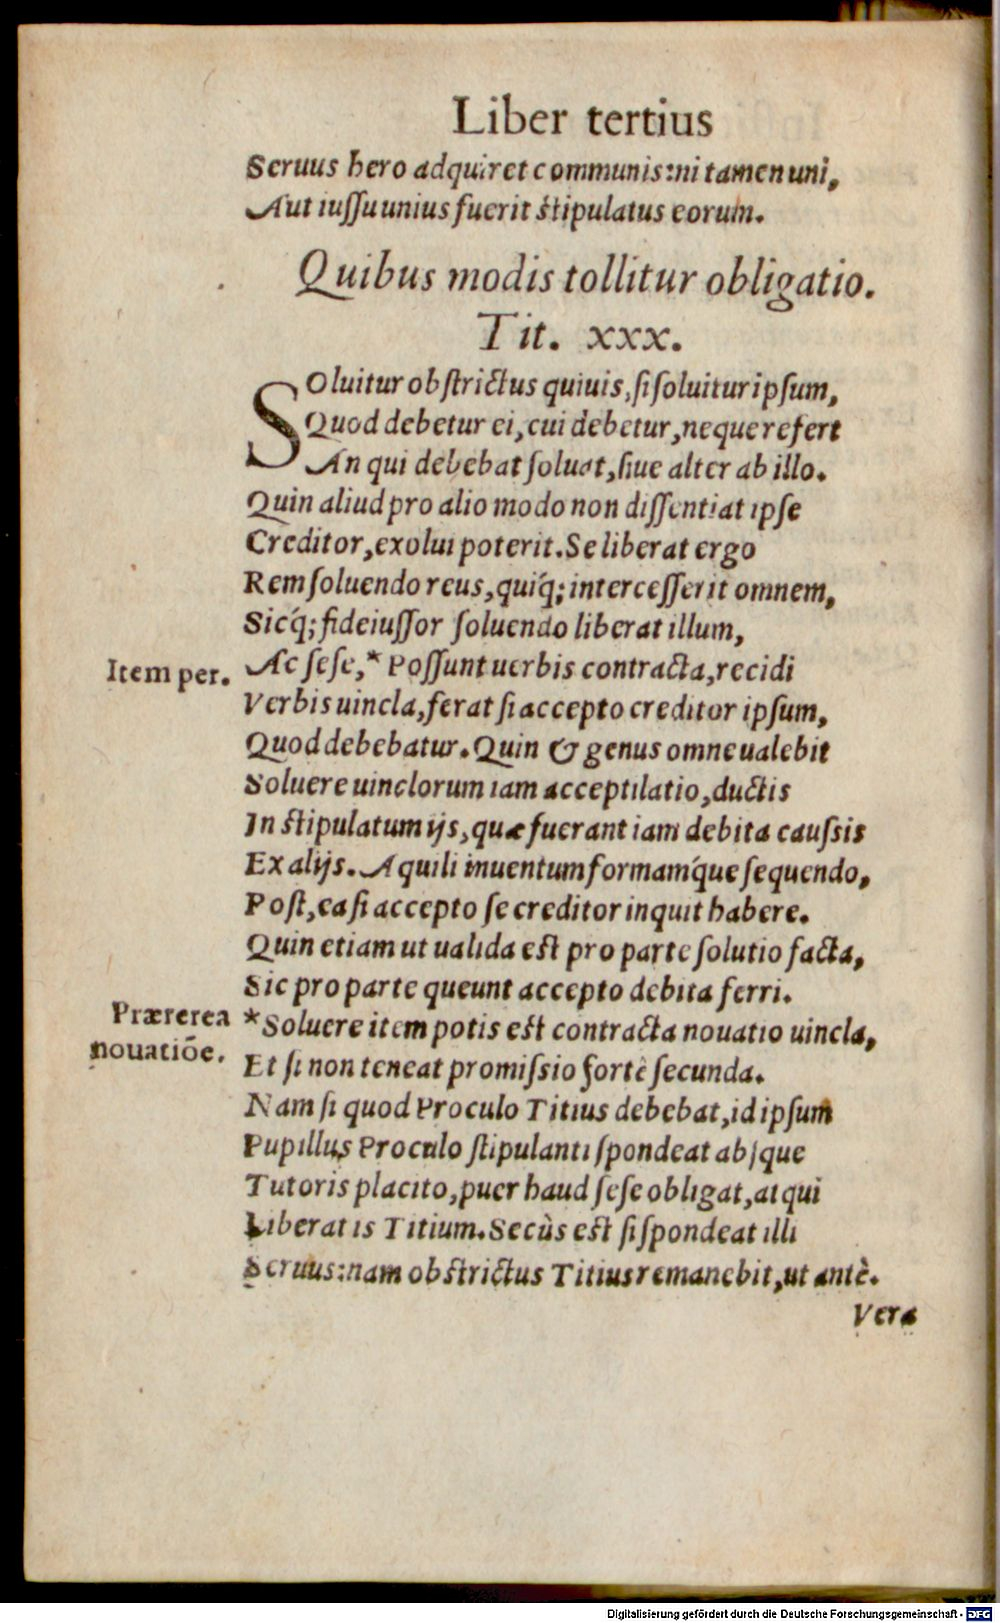 Liber tertius
Seruus hero adquiret communis:ni tamen uni,
Aut iussu unius fuerit stipulatus eorum.
Quibus modis tollitur obligatio.
Tit. xxx.
SOluitur obstrictus quiuis, si soluitur ipsum,
Quod debetur ei, cui debetur, neque refert
An qui debebat soluat, siue alter ab illo.
Quin aliud pro alio modo non dissentiat ipse
Creditor, exolui poterit. Se liberat ergo
Rem soluendo reus, quiq́; intercesserit omnem,
Sicq́; fideiussor soluendo liberat illum,
Item per.
Ac sese,* Possunt uerbis contracta, recidi
Verbis uincla, ferat si accepto creditor ipsum,
Quod debebatur. Quin & genus omne ualebit
Soluere uinclorum iam acceptilatio, ductis
In stipulatum ijs, quæ fuerant iam debita caussis
Ex alijs. Aquili inuentum formam'que sequendo,
Post, ea si accepto se creditor inquit habere.
Quin etiam ut ualida est pro parte solutio facta,
Sic pro parte queunt accepto debita ferri.
Prærerea
nouatiõe.
*Soluere item potis est contracta nouatio uincla,
Et si non teneat promissio fortè secunda.
Nam si quod Proculo Titius debebat, id ipsum
Pupillus Proculo stipulanti spondeat absque
Tutoris placito, puer haud sese obligat, atqui
Liberat is Titium. Secùs est si spondeat illi
Seruus: nam obstrictus Titius remanebit, ut antè.
Vera
Digitalisierung gefördert durch die Deutsche Forschungsgemeinschaft - DFG